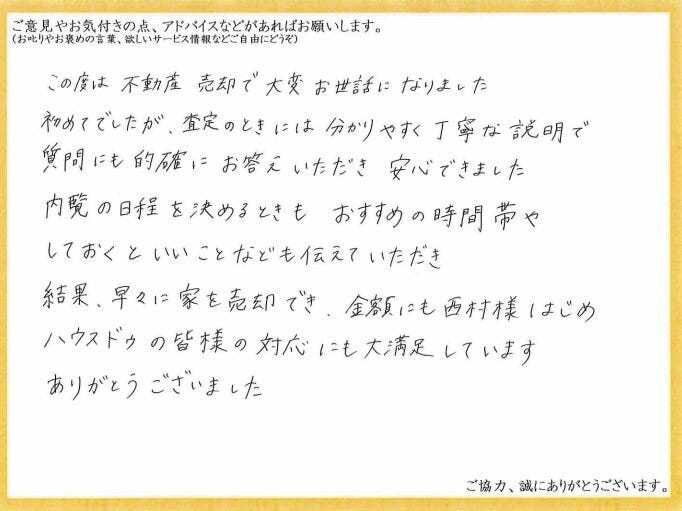 ご意見やお気付きの点、アドバイスなどがあればお願いします。
(お叱りやお褒めの言葉、欲しいサービス情報などご自由にどうぞ)
この度は 不動産 売却で 大変 お世話に なりました
初めてでしたが、査定のときには 分かりやすく 丁寧な 説明で
質問にも 的確に お答え いただき 安心できました
内覧の日程を決めるときも おすすめの時間帯や
しておくといいことなども伝えていただき
結果、早々に家を売却でき、金額にも西村様はじめ
ハウスドゥの皆様の対応にも大満足しています
ありがとうございました
ご協力、誠にありがとうございます。